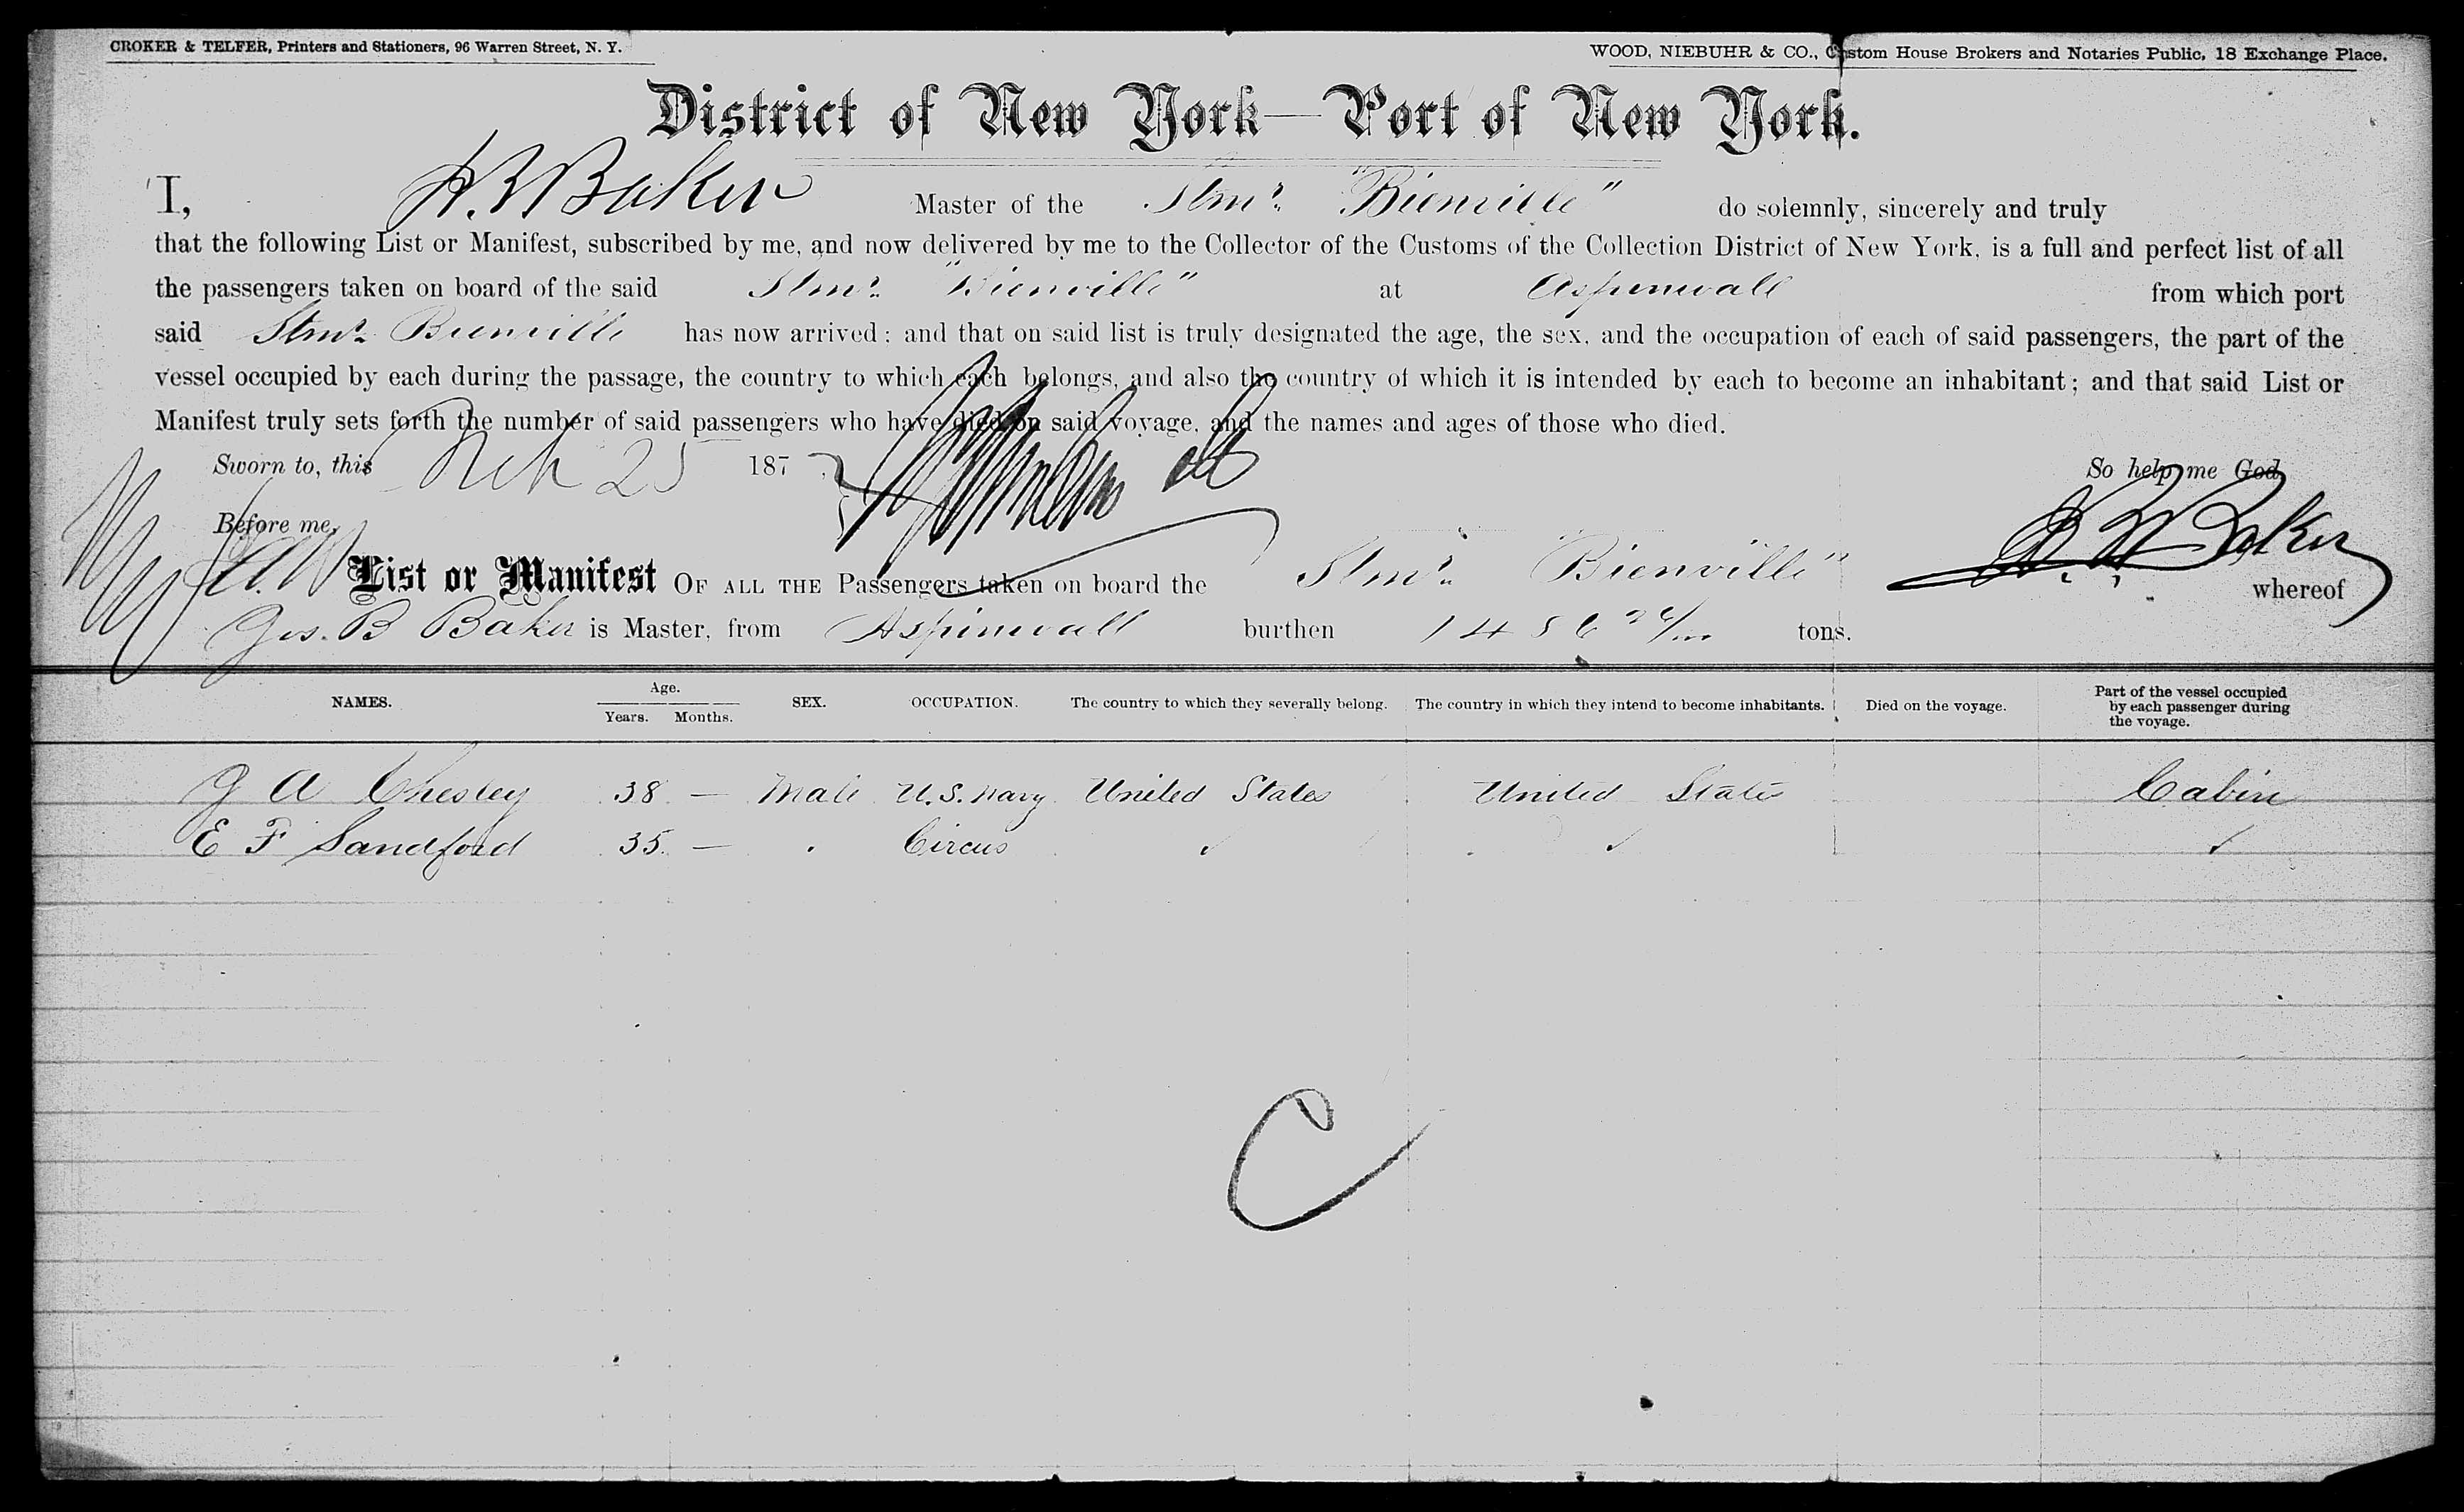 CROKER & TELFER, Printers and Stationers, 96 Warren Street, N. Y.
WOOD, NIEBUHR & CO., Custom House Brokers and Notaries Public, 18 Exchange Place.
District of New York—Port of New York.
I, Baker Master of the Stmr. "Bienville" do solemnly, sincerely and truly
that the following List or Manifest, subscribed by me, and now delivered by me to the Collector of the Customs of the Collection District of New York, is a full and perfect list of all
the passengers taken on board of the said Stmr. "Bienville" at Aspinwall from which port
said Stmr. Bienville has now arrived: and that on said list is truly designated the age, the sex, and the occupation of each of said passengers, the part of the
vessel occupied by each during the passage, the country to which each belongs, and also the country of which it is intended by each to become an inhabitant; and that said List or
Manifest truly sets forth the number of said passengers who have died on said voyage, and the names and ages of those who died.
Sworn to, this 25 187 So help me God.
Before me, Baker
List or Manifest OF ALL THE Passengers taken on board the Stmr. "Bienville" whereof
B Baker is Master, from Aspinwall burthen tons.
NAMES. Age. Years. Months. SEX. OCCUPATION. The country to which they severally belong. The country in which they intend to become inhabitants. Died on the voyage. Part of the vessel occupied by each passenger during the voyage.
J A Chesley 38 — Male U.S. Navy United States United States Cabin
E F Sandford 35 — Circus
C